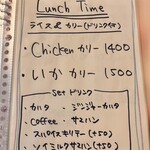 Lunch Time
ライス& カリー(ドリンク付)
・Chicken カリー 1400
・いか カリー 1500
Set ドリンク
・カハタ ・ジンジャーカハタ
・Coffee ・サマハン
・スパイスキリテー(+50)
・ソイミルクサマハン(+50)